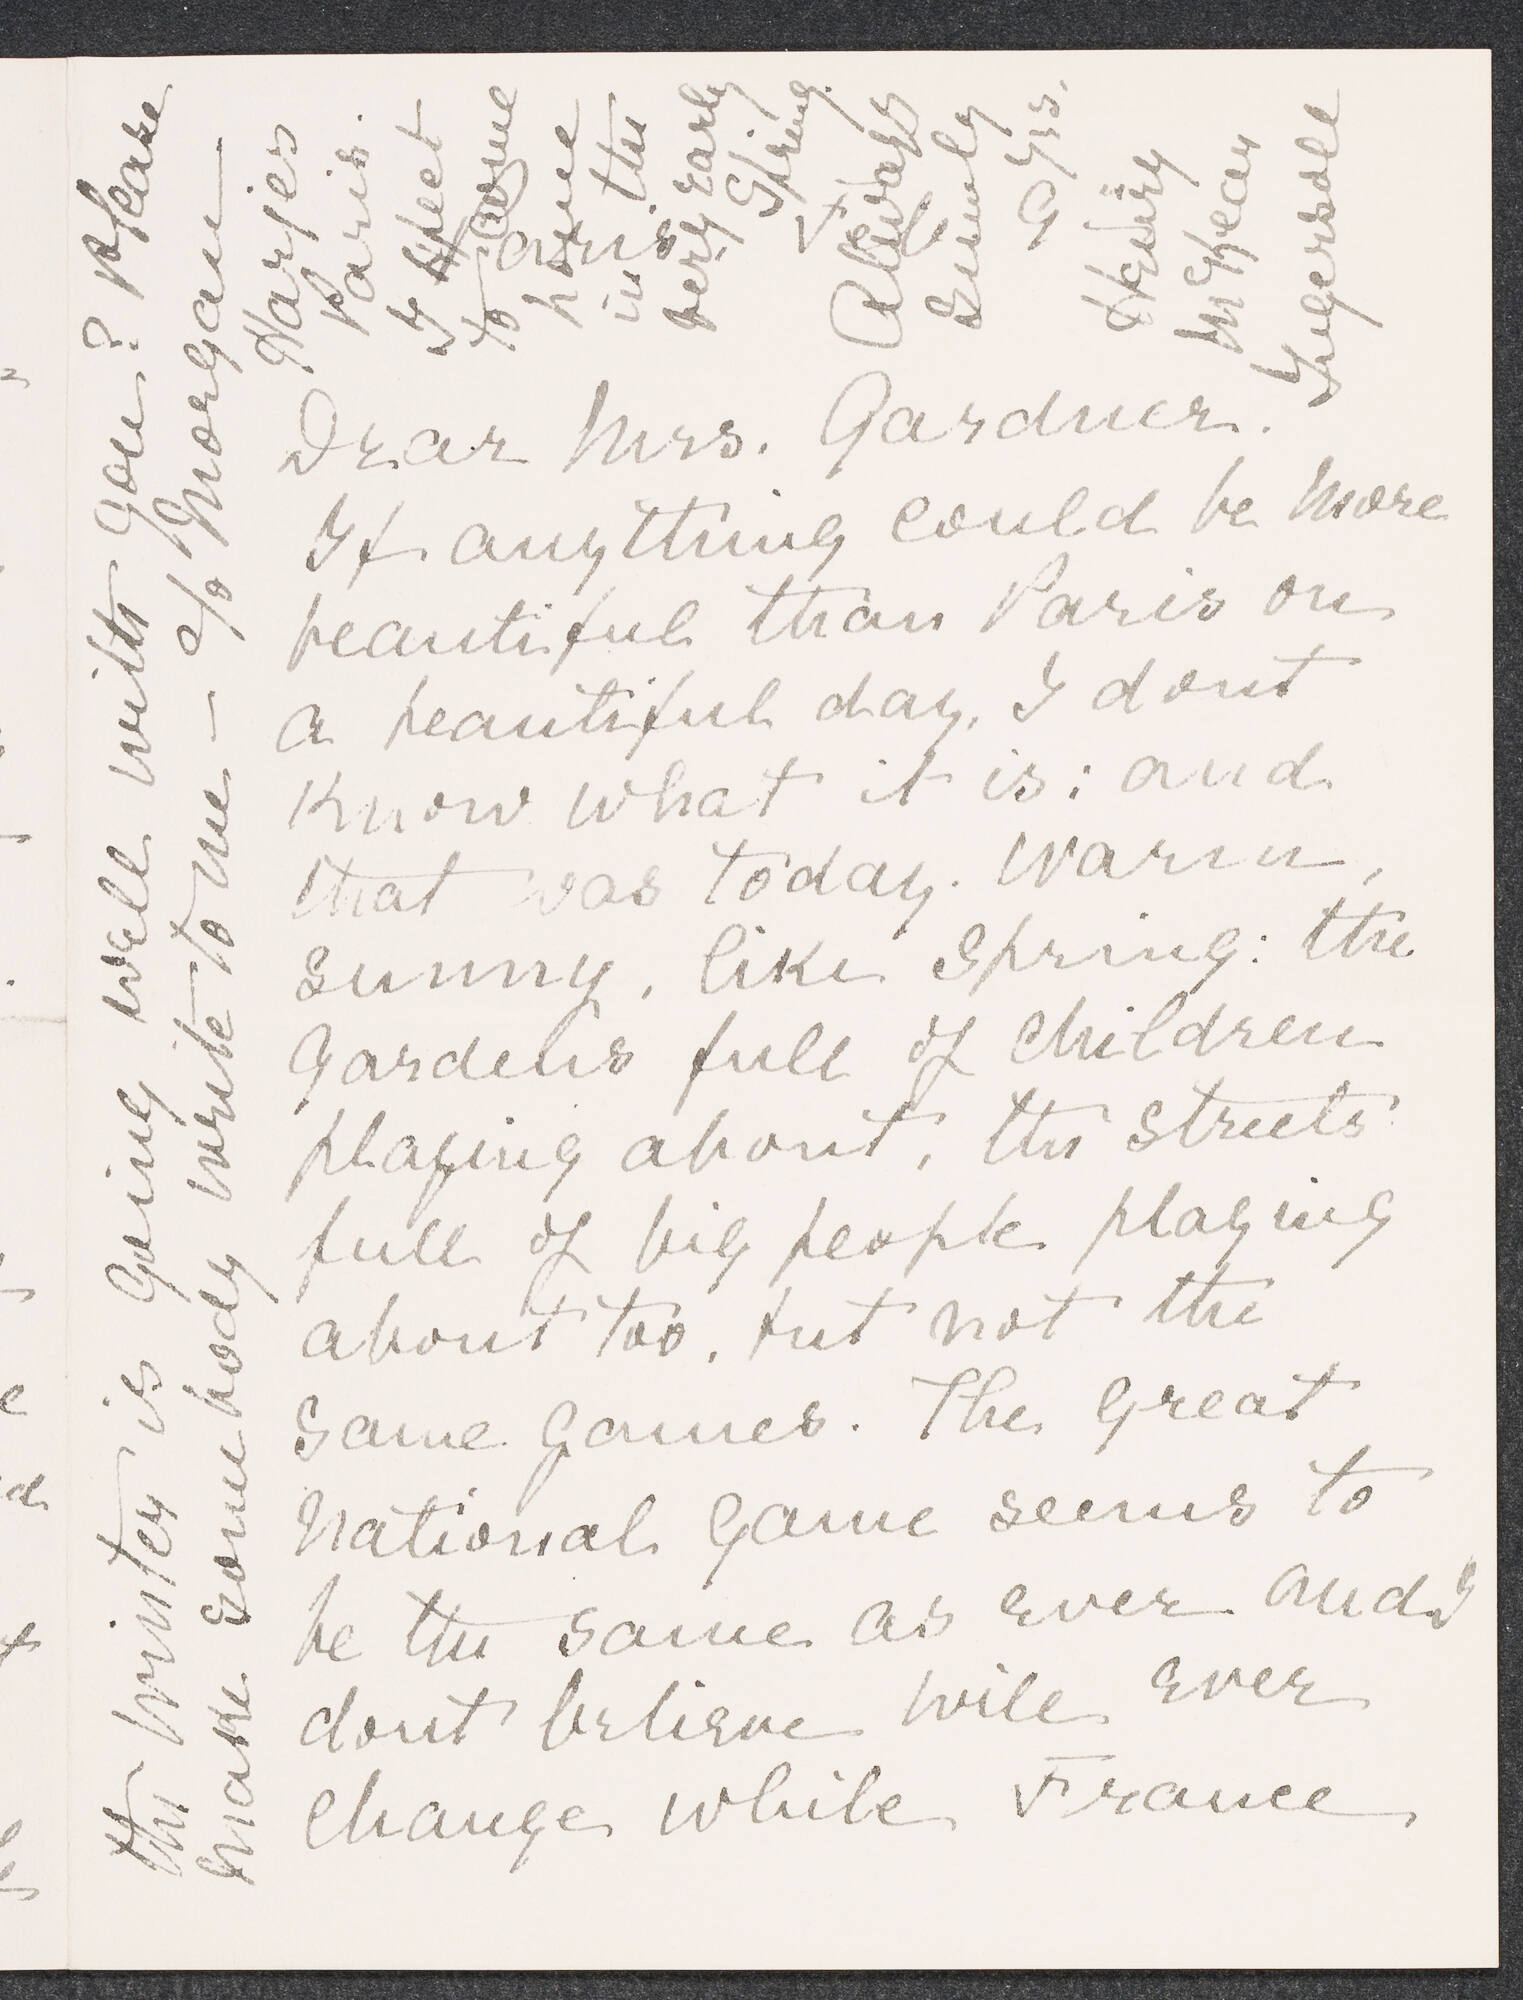 Dear Mrs. Gardner.
If anything could be more
beautiful than Paris on
a beautiful day, I dont
know what it is: and
that was today. Warm,
sunny, like Spring: the
Gardens full of children
playing about, the streets
full of big people playing
about too, but not the
same games. The great
national game seems to
be the same as ever and I
dont believe will ever
change while France
the winter is going well with you? Please
make somebody write to me - c/o Morgan
Harjes
Paris.
I expect
to
come
home
in the
very early
Spring.
Always
Sincerely
Yrs.
Henry
McKean
Ingersoll